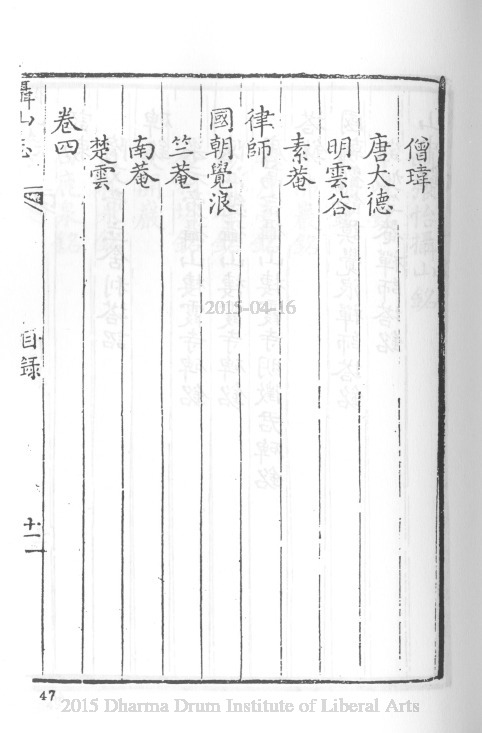 僧瑋
唐大德
明雲谷
素菴
律師
國朝覺浪
竺菴
南菴
楚雲
卷四
攝山志
目錄
十二
47
2015-04-16
2015 Dharma Drum Institute of Liberal Arts